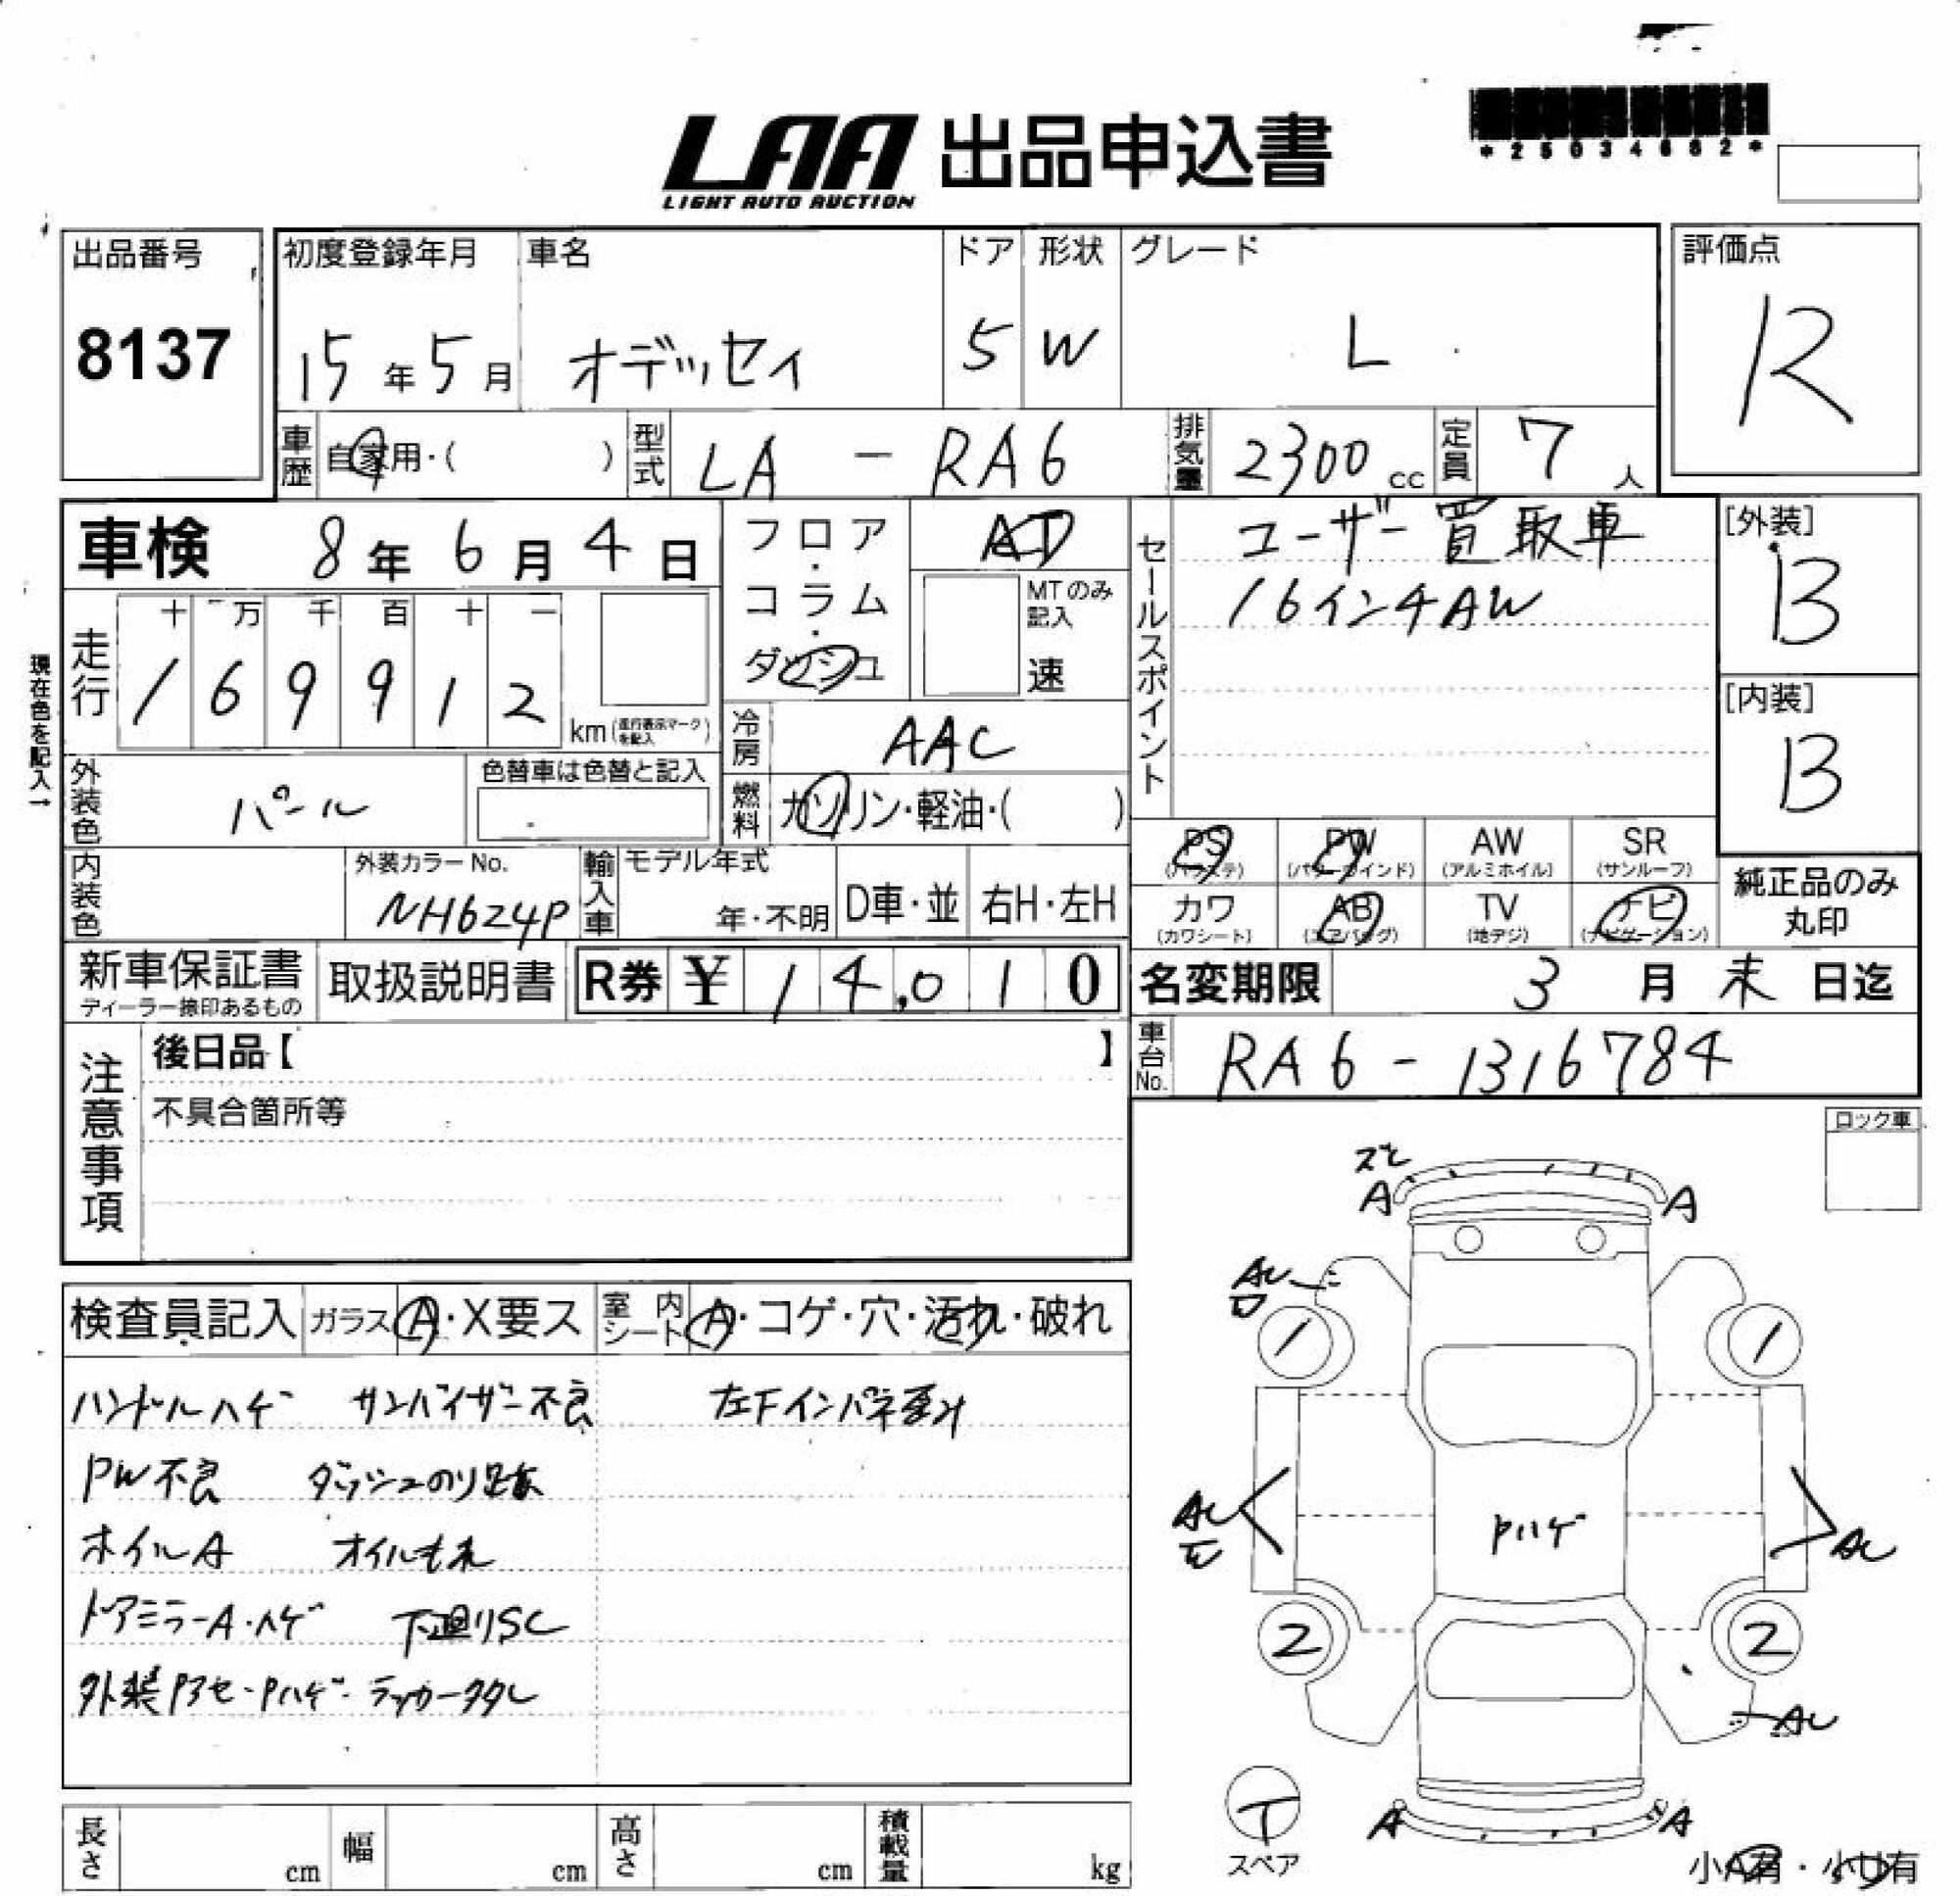 *25034682*
LAA 出品申込書
LIGHT AUTO AUCTION
出品番号
8137
初度登録年月
15年5月
車名
オデッセイ
ドア
5
形状
W
グレード
L
評価点
R
車歴
自家用・(　　)
型式
LA - RA6
排気量
2300 cc
定員
7人
車検 8年6月4日
フロア・コラム・ダッシュ
AT
MTのみ記入
速
セールスポイント
ユーザー買取車
16インチAW
[外装]
B
[内装]
B
現在色を記入→
走行
十 万 千 百 十 一
1 6 9 9 1 2
km(走行表示マークを記入)
冷房
AAC
外装色
パール
色替車は色替と記入
燃料
ガソリン・軽油・(　　)
PS (パワステ)
PW (パワーウインド)
AW (アルミホイル)
SR (サンルーフ)
カワ (カワシート)
AB (エアバッグ)
TV (地デジ)
ナビ (ナビゲーション)
純正品のみ丸印
内装色
外装カラーNo.
NH624P
輸入車
モデル年式
年・不明
D車・並
右H・左H
新車保証書
ディーラー捺印あるもの
取扱説明書
R券 ¥ 14,010
名変期限 3月末日迄
車台No.
RA6-1316784
注意事項
後日品【　　】
不具合箇所等
ロック車
検査員記入 ガラス A・X要ス 室内シート A・コゲ・穴・汚れ・破れ
ハンドルハゲ サンバイザー不良 左Fインパネ歪み
PW不良 ダッシュのり跡
ホイルA オイルもれ
ドアミラーA・ハゲ 下廻りSC
外装Pアセ・Pハゲ・ラッカータタレ
A A
AU
1 1
AU
Pハゲ
AU
2 2
AU
A A
T
スペア
小A有・小U有
長さ cm
幅 cm
高さ cm
積載量 kg